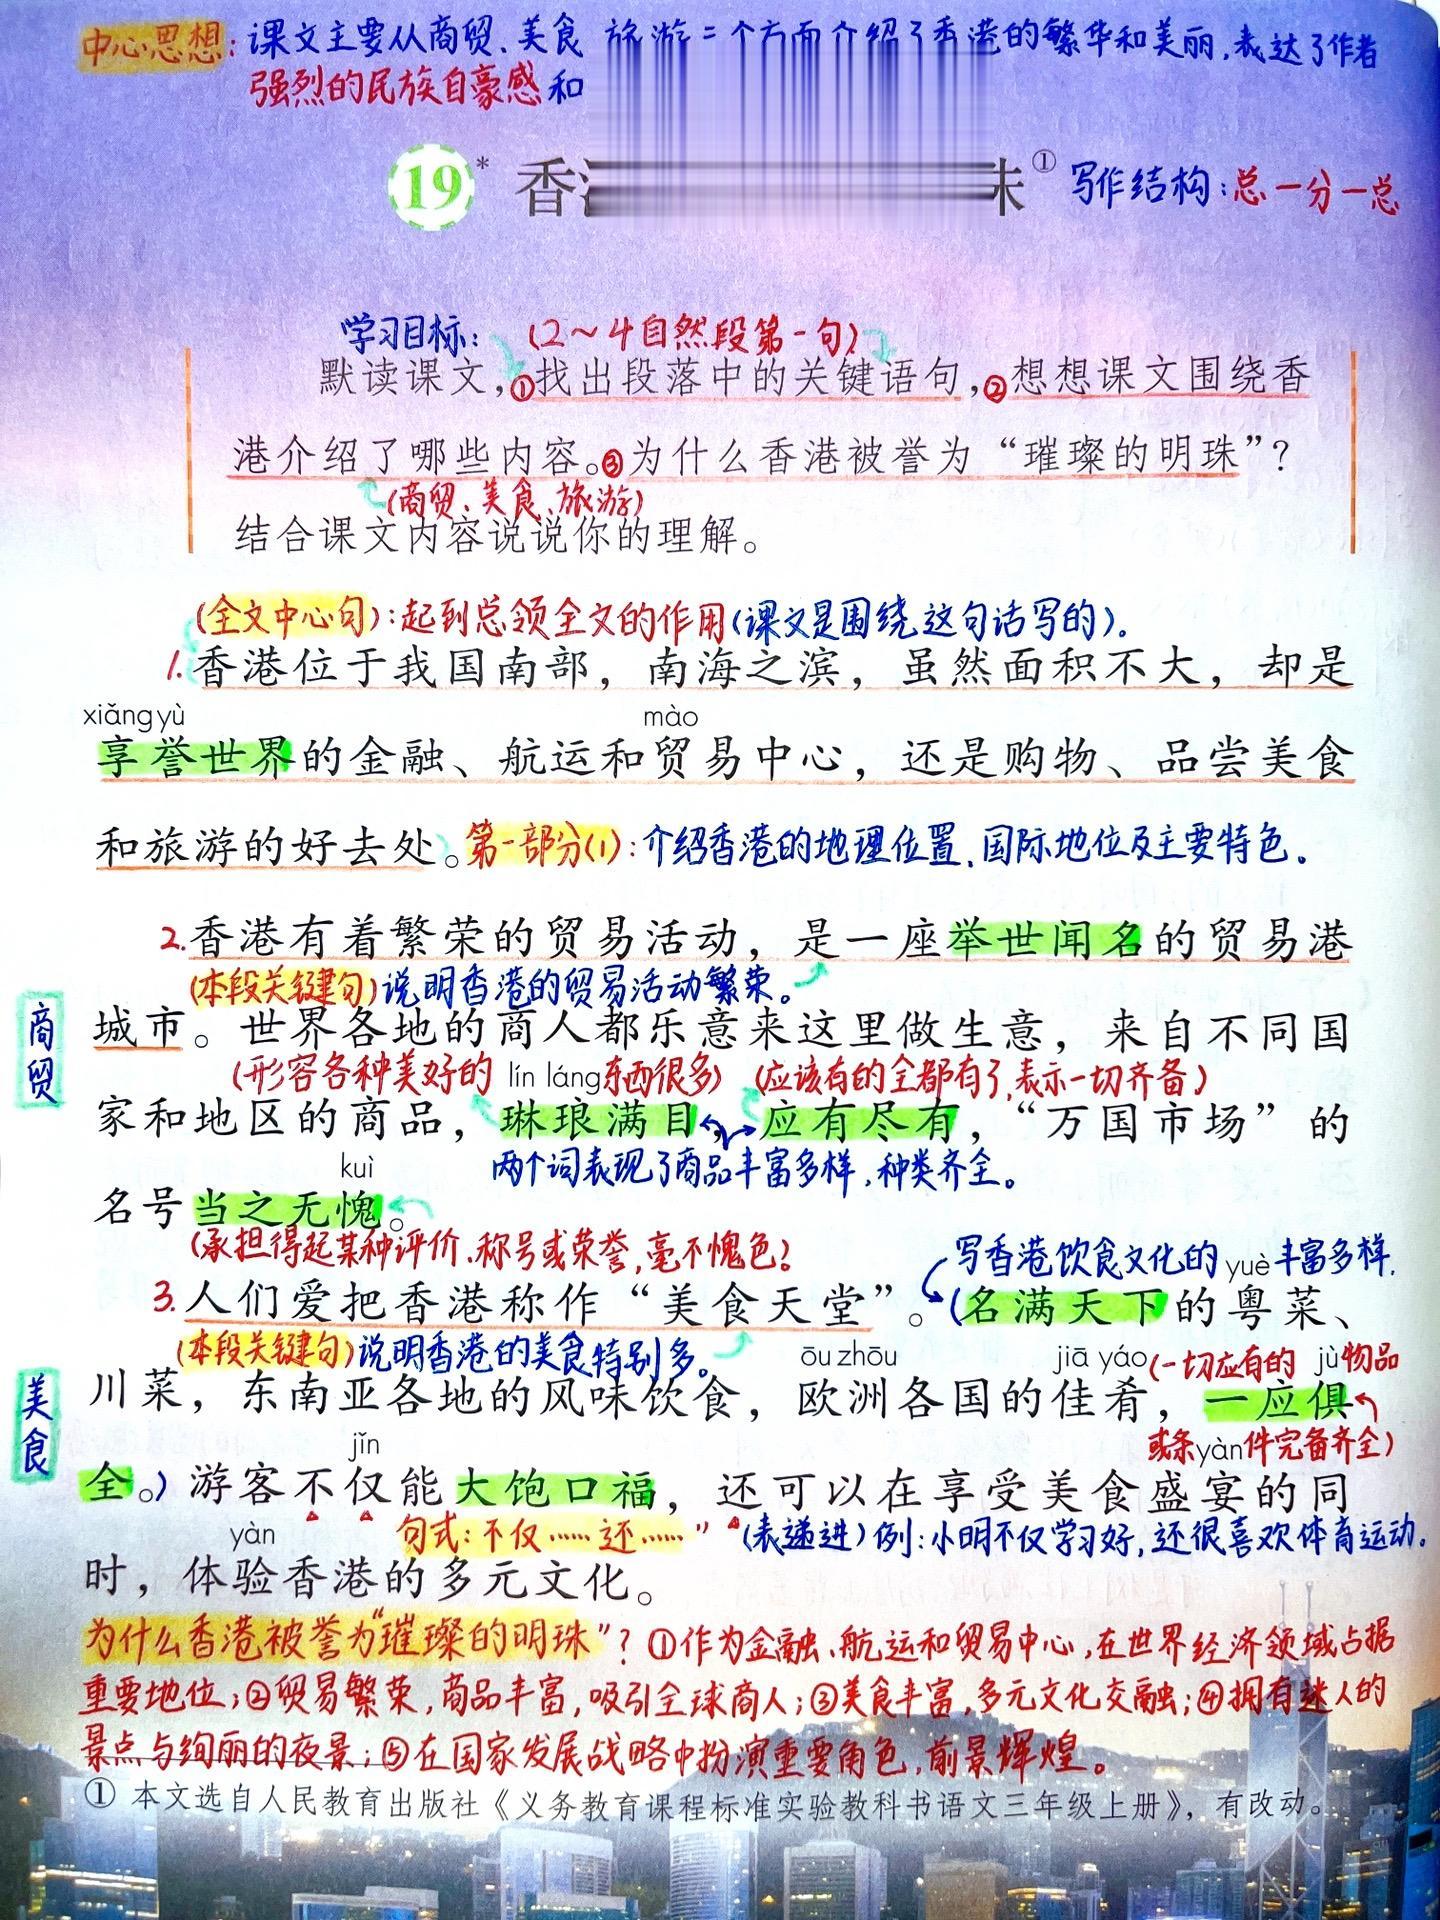 中心思想：课文主要从商贸、美食 旅游三个方面介绍了香港的繁华和美丽，表达了作者
强烈的民族自豪感和
19* 香 珠① 写作结构：总一分一总
学习目标：（2～4自然段第一句）
默读课文，①找出段落中的关键语句，②想想课文围绕香
港介绍了哪些内容。③为什么香港被誉为“璀璨的明珠”？
（商贸、美食、旅游）
结合课文内容说说你的理解。
（全文中心句）：起到总领全文的作用（课文是围绕这句话写的）。
1.香港位于我国南部，南海之滨，虽然面积不大，却是
xiǎng yù mào
享誉世界的金融、航运和贸易中心，还是购物、品尝美食
和旅游的好去处。第一部分（1）：介绍香港的地理位置、国际地位及主要特色。
2.香港有着繁荣的贸易活动，是一座举世闻名的贸易港
（本段关键句）说明香港的贸易活动繁荣。
商贸
城市。世界各地的商人都乐意来这里做生意，来自不同国
（形容各种美好的 lín láng 东西很多）（应该有的全都有了，表示一切齐备）
家和地区的商品，琳琅满目，应有尽有，“万国市场”的
kuì 两个词表现了商品丰富多样，种类齐全。
名号当之无愧。
（承担得起某种评价、称号或荣誉，毫不愧色？
写香港饮食文化的 yuè 丰富多样.
3.人们爱把香港称作“美食天堂”。（名满天下的粤菜、
（本段关键句）说明香港的美食特别多。
ōu zhōu jiā yáo（一切应有的 jù 物品
美食
川菜，东南亚各地的风味饮食，欧洲各国的佳肴，一应俱
jǐn 或条 yàn 件完备齐全）
全。）游客不仅能大饱口福，还可以在享受美食盛宴的同
yàn 句式：不仅……还……”（表递进）例：小明不仅学习好，还很喜欢体育运动。
时，体验香港的多元文化。
为什么香港被誉为“璀璨的明珠”？①作为金融、航运和贸易中心，在世界经济领域占据
重要地位；②贸易繁荣，商品丰富，吸引全球商人；③美食丰富，多元文化交融；④拥有迷人的
景点与绚丽的夜景；⑤在国家发展战略中扮演重要角色，前景辉煌。
① 本文选自人民教育出版社《义务教育课程标准实验教科书语文三年级上册》，有改动。